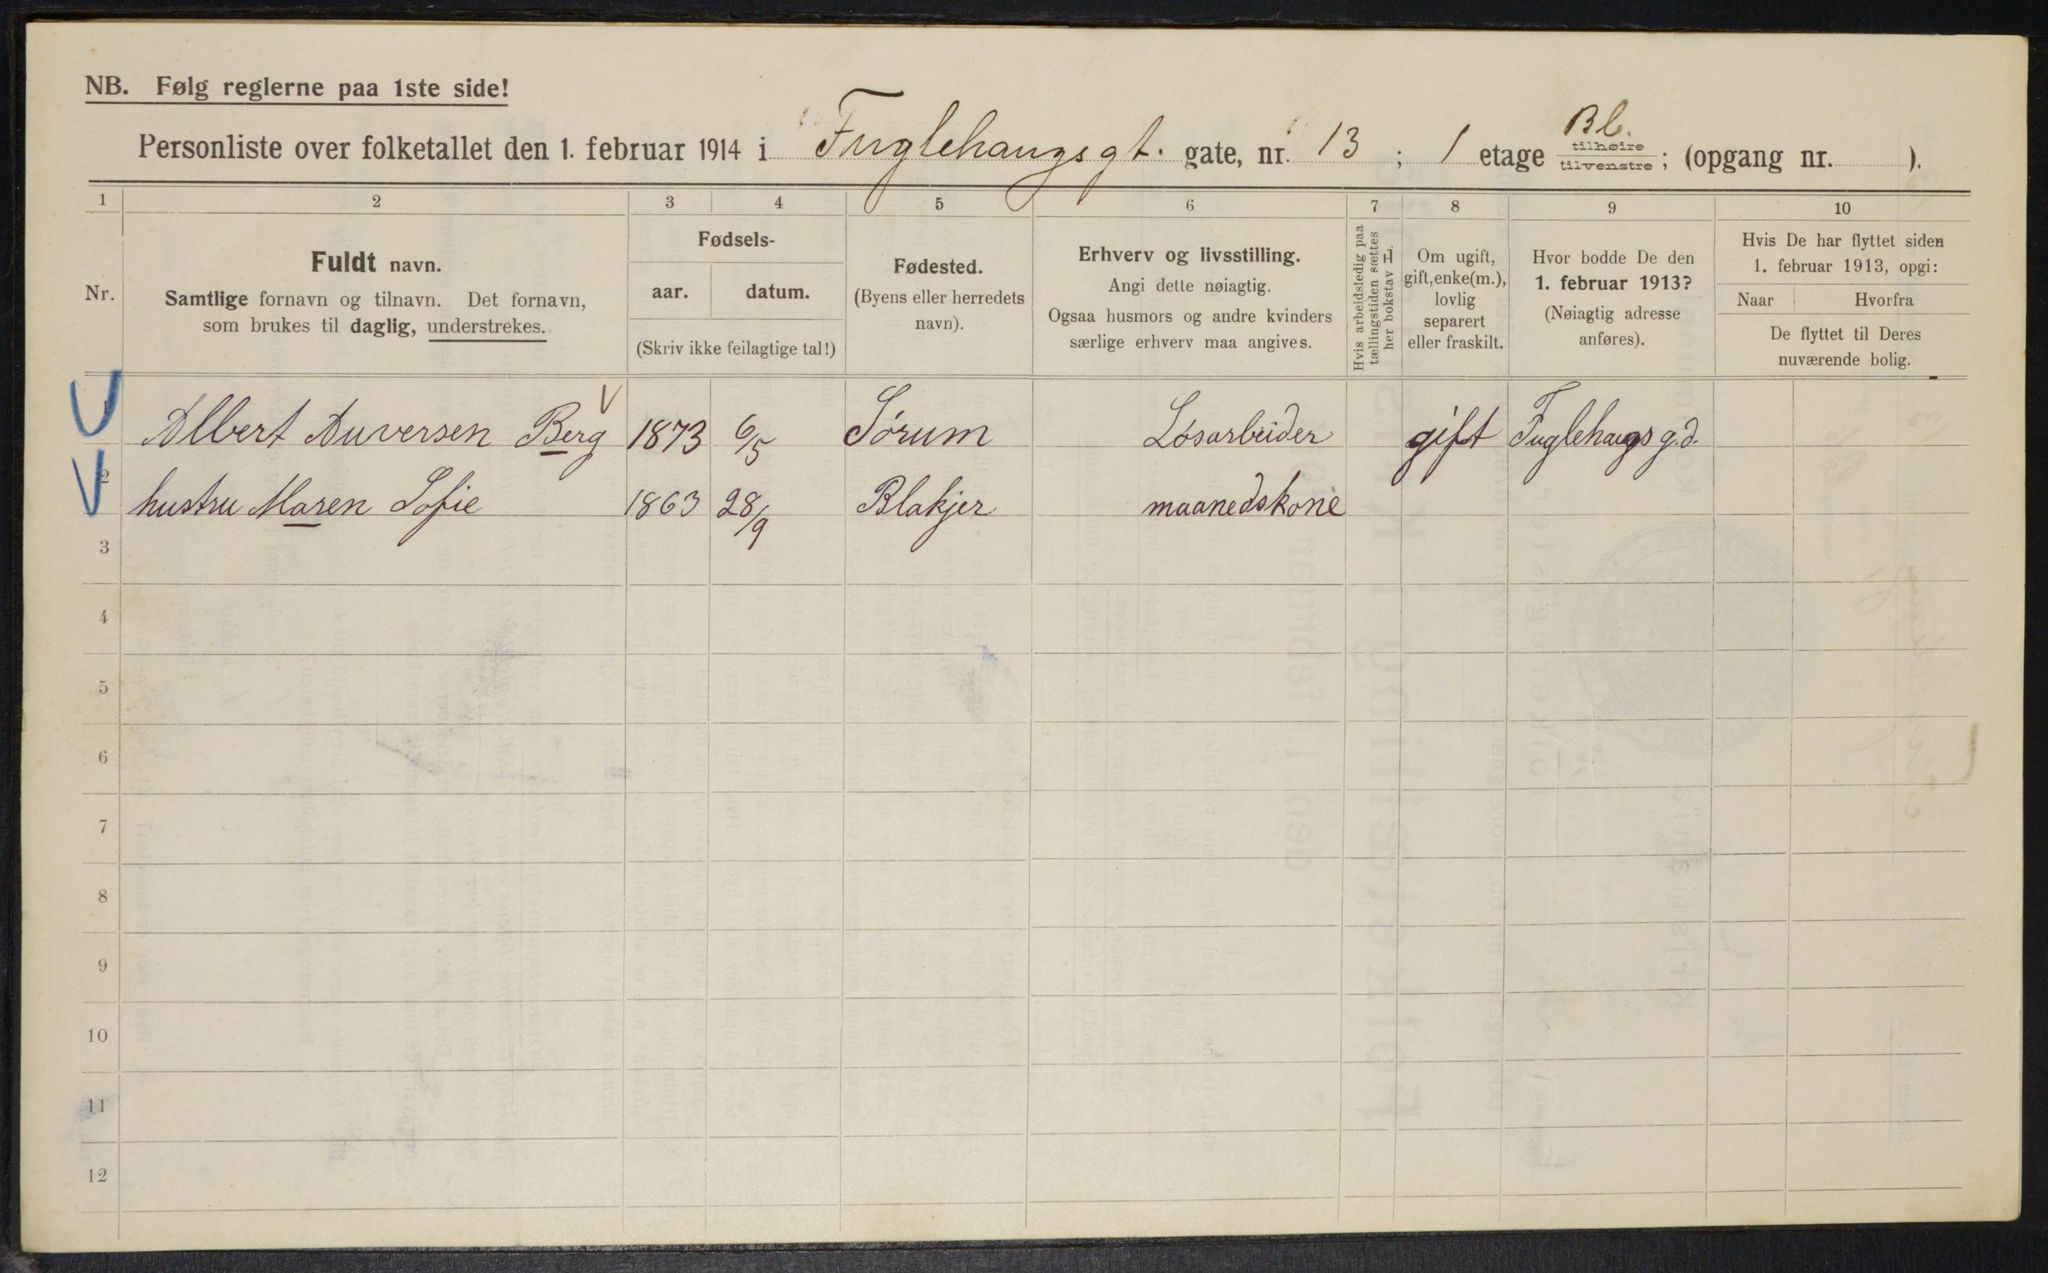 NB. Følg reglerne paa 1ste side!
Personliste over folketallet den 1. februar 1914 i Fuglehaugsgt. gate, nr. 13 ; 1 etage Bb. tilhøire tilvenstre ; (opgang nr. ).
1 2 3 4 5 6 7 8 9 10
Nr.
Fuldt navn.
Samtlige fornavn og tilnavn. Det fornavn,
som brukes til daglig, understrekes.
Fødsels-
aar. datum.
(Skriv ikke feilagtige tal!)
Fødested.
(Byens eller herredets
navn).
Erhverv og livsstilling.
Angi dette nøiagtig.
Ogsaa husmors og andre kvinders
særlige erhverv maa angives.
Hvis arbeidsledig paa
tællingstiden sættes
her bokstav L.
Om ugift,
gift, enke(m.),
lovlig
separert
eller fraskilt.
Hvor bodde De den
1. februar 1913?
(Nøiagtig adresse
anføres).
Hvis De har flyttet siden
1. februar 1913, opgi:
Naar Hvorfra
De flyttet til Deres
nuværende bolig.
1 Albert Auversen Berg 1873 6/5 Sørum Løsarbeider gift Fuglehaugs g.d.
2 hustru Maren Sofie 1863 28/9 Blakjer maanedskone
3
4
5
6
7
8
9
10
11
12